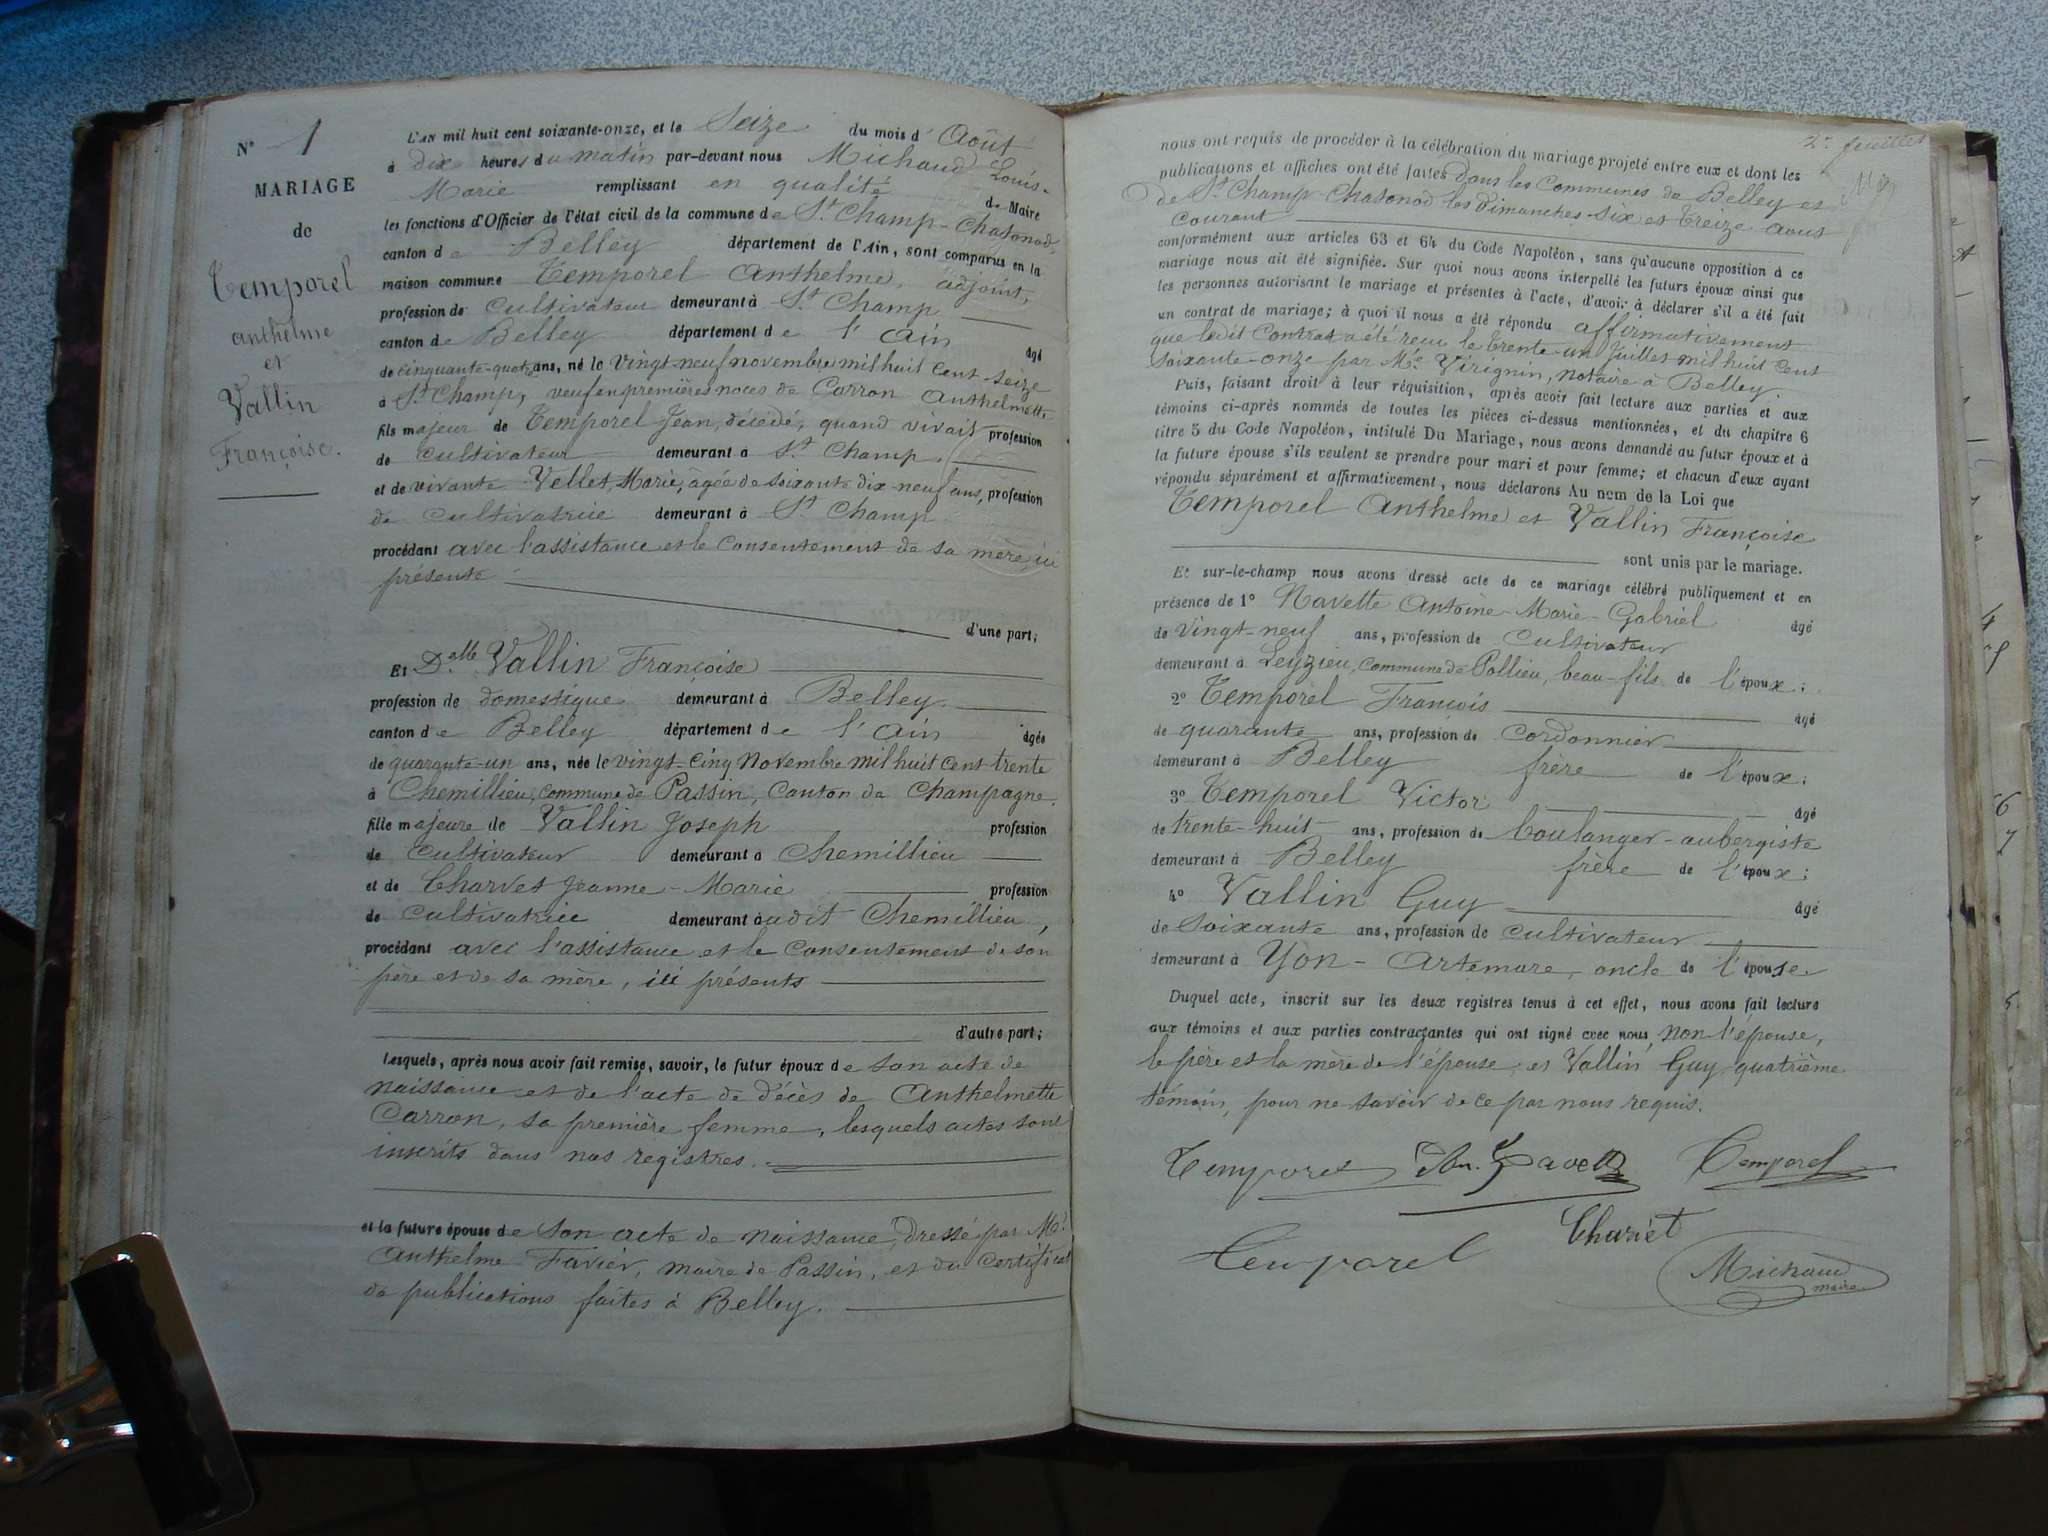 N° 1
MARIAGE
de
Temporel
Anthelme
et
Vallin
Françoise.
L'AN mil huit cent soixante-onze, et le Seize du mois d'Août
à dix heures du matin par-devant nous Michaud Louis-
Marie remplissant en qualité de Maire
les fonctions d'Officier de l'état civil de la commune de St Champ-Chatonod,
canton de Belley département de l'Ain, sont comparus en la
maison commune Temporel Anthelme, adjoint,
profession de cultivateur demeurant à St Champ
canton de Belley département de l'Ain âgé
de cinquante-quatre ans, né le vingt-neuf novembre mil huit cent seize
à St Champ, veuf en premières noces de Carron Anthelmette
fils majeur de Temporel Jean, décédé, quand vivait profession
de cultivateur demeurant à St Champ.
et de vivante Vellet, Marie, âgée de soixante dix-neuf ans, profession
de cultivatrice demeurant à St Champ
procédant avec l'assistance et le consentement de sa mère, ici
présente
d'une part;
Et Delle Vallin Françoise
profession de domestique demeurant à Belley.
canton de Belley département de l'Ain âgée
de quarante-un ans, née le vingt-cinq Novembre mil huit cent trente
à Chemillieu, commune de Passin, canton de Champagne,
fille majeure de Vallin Joseph profession
de cultivateur demeurant à Chemillieu
et de Charvet Jeanne-Marie profession
de cultivatrice demeurant audit Chemillieu,
procédant avec l'assistance et le consentement de son
père et de sa mère, ici présents
d'autre part;
Lesquels, après nous avoir fait remise, savoir, le futur époux de son acte de
naissance et de l'acte de décès de Anthelmette
Carron, sa première femme, lesquels actes sont
inscrits dans nos registres.
et la future épouse de son acte de naissance, dressé par Mr
Anthelme Favier, maire de Passin, et du certificat
de publications faites à Belley.
2e feuillet
nous ont requis de procéder à la célébration du mariage projeté entre eux et dont les
publications et affiches ont été faites dans les Communes de Belley et
de St Champ-Chatonod les dimanches six et treize aout
courant
conformément aux articles 63 et 64 du Code Napoléon, sans qu'aucune opposition à ce
mariage nous ait été signifiée. Sur quoi nous avons interpellé les futurs époux ainsi que
les personnes autorisant le mariage et présentes à l'acte, d'avoir à déclarer s'il a été fait
un contrat de mariage; à quoi il nous a été répondu affirmativement
que ledit Contrat a été reçu le trente-un juillet mil huit cent
soixante-onze par Me Virignin, notaire à Belley.
Puis, faisant droit à leur réquisition, après avoir fait lecture aux parties et aux
témoins ci-après nommés de toutes les pièces ci-dessus mentionnées, et du chapitre 6
titre 5 du Code Napoléon, intitulé Du Mariage, nous avons demandé au futur époux et à
la future épouse s'ils veulent se prendre pour mari et pour femme; et chacun d'eux ayant
répondu séparément et affirmativement, nous déclarons Au nom de la Loi que
Temporel Anthelme et Vallin Françoise
sont unis par le mariage.
Et sur-le-champ nous avons dressé acte de ce mariage célébré publiquement et en
présence de 1° Navette Antoine-Marie-Gabriel âgé
de vingt-neuf ans, profession de cultivateur
demeurant à Leyzieu, commune de Pollieu, beau-fils de l'époux;
2° Temporel François âgé
de quarante ans, profession de cordonnier
demeurant à Belley frère de l'époux;
3° Temporel Victor âgé
de trente-huit ans, profession de boulanger-aubergiste
demeurant à Belley frère de l'époux;
4° Vallin Guy âgé
de soixante ans, profession de cultivateur
demeurant à Yon-Artemare, oncle de l'épouse
Duquel acte, inscrit sur les deux registres tenus à cet effet, nous avons fait lecture
aux témoins et aux parties contractantes qui ont signé avec nous, non l'épouse,
le père et la mère de l'épouse, et Vallin Guy quatrième
témoin, pour ne savoir de ce par nous requis.
Temporel Temporel
Temporel
Michaud
maire